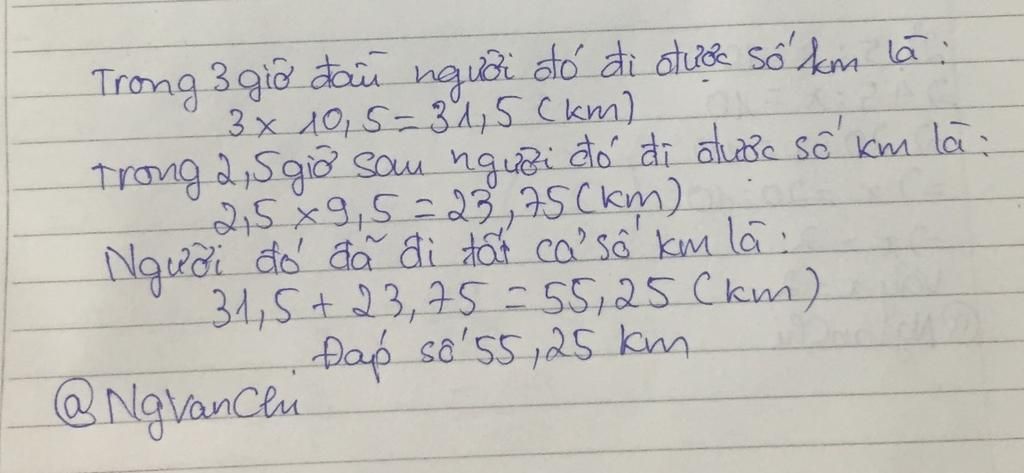 Trong 3 giờ đầu người đó đi được số km là:
3 x 10,5 = 31,5 (km)
Trong 2,5 giờ sau người đó đi được số km là:
2,5 x 9,5 = 23,75 (km)
Người đó đã đi tất cả số km là:
31,5 + 23,75 = 55,25 (km)
Đáp số 55,25 km
@NgVanChi